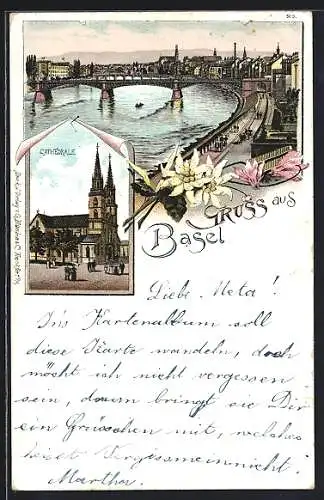 CATHÉDRALE
GRUSS aus
Basel
Liebe Meta!
In's Kartenalbum soll
diese Karte wandeln, doch
möcht ich nicht vergessen
sein, darum bringt sie Dir
ein Grüsschen mit, welches
heisst Vergissmeinnicht.
Martha.